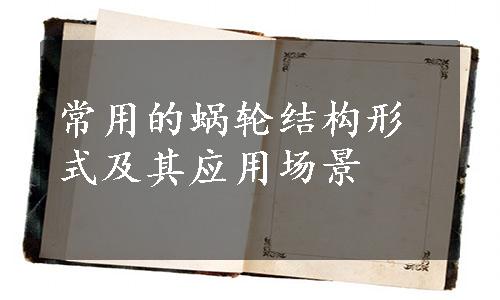 常用的蜗轮结构形
式及其应用场景